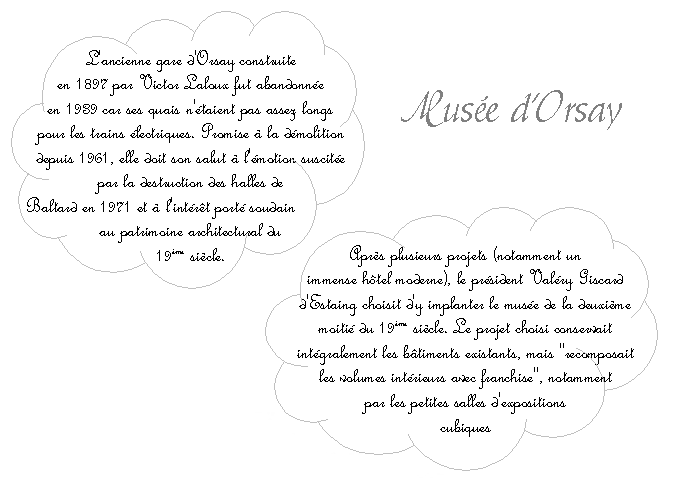 L'ancienne gare d'Orsay construite
en 1897 par Victor Laloux fut abandonnée
en 1939 car ses quais n'étaient pas assez longs
pour les trains électriques. Promise à la démolition
depuis 1961, elle doit son salut à l'émotion suscitée
par la destruction des halles de
Baltard en 1971 et à l'intérêt porté soudain
au patrimoine architectural du
19ème siècle.
Musée d'Orsay
Après plusieurs projets (notamment un
immense hôtel moderne), le président Valéry Giscard
d'Estaing choisit d'y implanter le musée de la deuxième
moitié du 19ème siècle. Le projet choisi conservait
intégralement les bâtiments existants, mais "recomposait
les volumes intérieurs avec franchise", notamment
par les petites salles d'expositions
cubiques